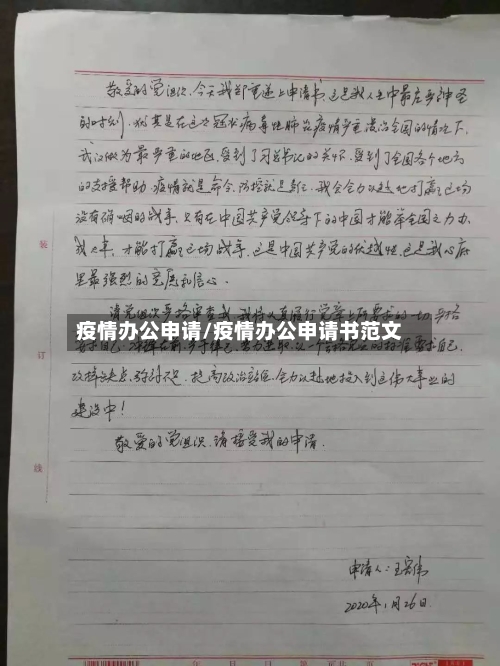 敬爱的党组织、今天我郑重递上申请书,这是我人生中最庄严神圣
的时刻。尤其是在这次冠状病毒性肺炎疫情严重波及全国的情况下,
武汉做为最严重的地区,受到了习总书记的关怀、受到了全国各个地方
的支援帮助。疫情就是命令、防控就是责任、我会全力以赴地打赢这场
没有硝烟的战争、只有在中国共产党领导下的中国才能举全国之力、办
大事、才能打赢这场战争、这是中国共产党的优越性、这是我心底
里最强烈的意愿和信心。
请党组织严格审查我、我将认真履行党章上所要求的一切、严格
疫情办公申请/疫情办公申请书范文
要求自己
要求自己、
改掉缺点、弥补不足、提高政治觉悟、全力以赴地投入到这伟大事业的
建设中!
敬爱的党组织、请接受我的申请。
申请人:王
2020年1月26日
装
订
线